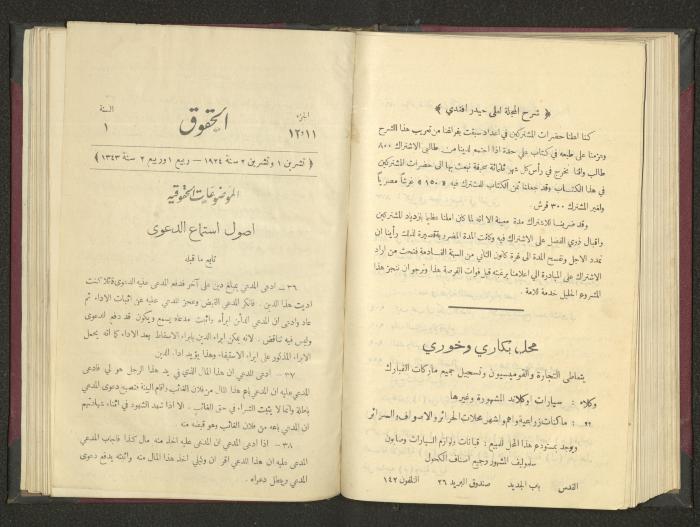 ﴿ شرح المجلة لعلي حيدر افندي ﴾
كنا اعلنا حضرات المشتركين في اعداد سبقت بفراغنا من تعريب هذا الشرح
وعزمنا على طبعه في كتاب على حدة اذا اجتمع لدينا من طالبي الاشتراك ٨٠٠
طالب واننا نخرج في رأس كل شهر ثلثمائة صحيفة نبعث بها الى حضرات المشتركين
في هذا الكتاب وقد جعلنا ثمن الكتاب للمشترك فيه «١٥٠» غرشاً مصرياً
ولغير المشترك ٣٠٠ قرش .
وقد ضربنا للاشتراك مدة معينة الا انه لما كان املنا عظيما بازدياد المشتركين
واقبال ذوي الفضل على الاشتراك فيه وكانت المدة المضروبة قصيرة لذلك رأينا ان
نمدد الاجل ونفسح المدة الى غرة كانون الثاني من السنة القادمة فنحث من اراد
الاشتراك على المبادرة الى اعلامنا برغبته قبل فوات الفرصة هذا ونرجو ان ننجز هذا
المشروع الجليل خدمة للامة .
محلـ بكاري وخوري
يتعاطى التجارة والقومسيون وتسجيل جميع ماركات الفبارك
وكلاء : سيارات اوكلاند المشهورة وغيرها
ماكنات زراعية واهم واشهر محلات الحرائر والاصواف والستائر
ويوجد بمستودع هذا المحل للبيع : قبانات ولوازم السيارات وصابون
سلفوليف الشهور وجميع اصناف الكحول
القدس باب الجديد صندوق البريد ٢٦ التلفون ١٤٢
السنة
١
الحقوق
الجزء
١١و١٢
﴿ تشرين ١ وتشرين ٢ سنة ١٩٢٤ — ربيع ١ وربيع ٢ سنة ١٣٤٣ ﴾
الموضوعات الحقوقية
اصول استماع الدعوى
تابع ما قبله
٣٦ – ادعى المدعي بمبلغ دين على آخر فدفع المدعى عليه الدعوى قائلا كنت
اديت هذا الدين . فانكر المدعي القبض وعجز المدعى عليه عن اثبات الاداء ثم
عاد وادعى ان المدعي الدائن ابرأه واثبت مدعاه يسمع ويكون قد دفع الدعوى
وليس فيه تناقض . لانه يمكن ايراد الدين بابراء الاسقاط بعد الاداء كما أنه يحمل
الابراء المذكور على ابراء الاستيفاء وهذا يؤيد اداء الدين
٣٧ – ادعى المدعي ان هذا المال الذي في يد هذا الرجل هو لي فادعى
المدعى عليه ان المدعي باع هذا المال من فلان الغائب واقام البينة فتصبح دعوى المدعي
باطلة وانما لا يثبت الشراء في حق الغائب . الا اذا شهد الشهود في اثناء شهادتهم
ان المدعي باعه من فلان الغائب وهو قبضه منه
٣٨ – اذا ادعى المدعي ان المدعى عليه اخذ منه مال كذا فاجاب المدعى
عليه ان هذا المدعي اقر ان وكيلي اخذ هذا المال منه واثبته يدفع دعوى
المدعي ويبطل دعواه .